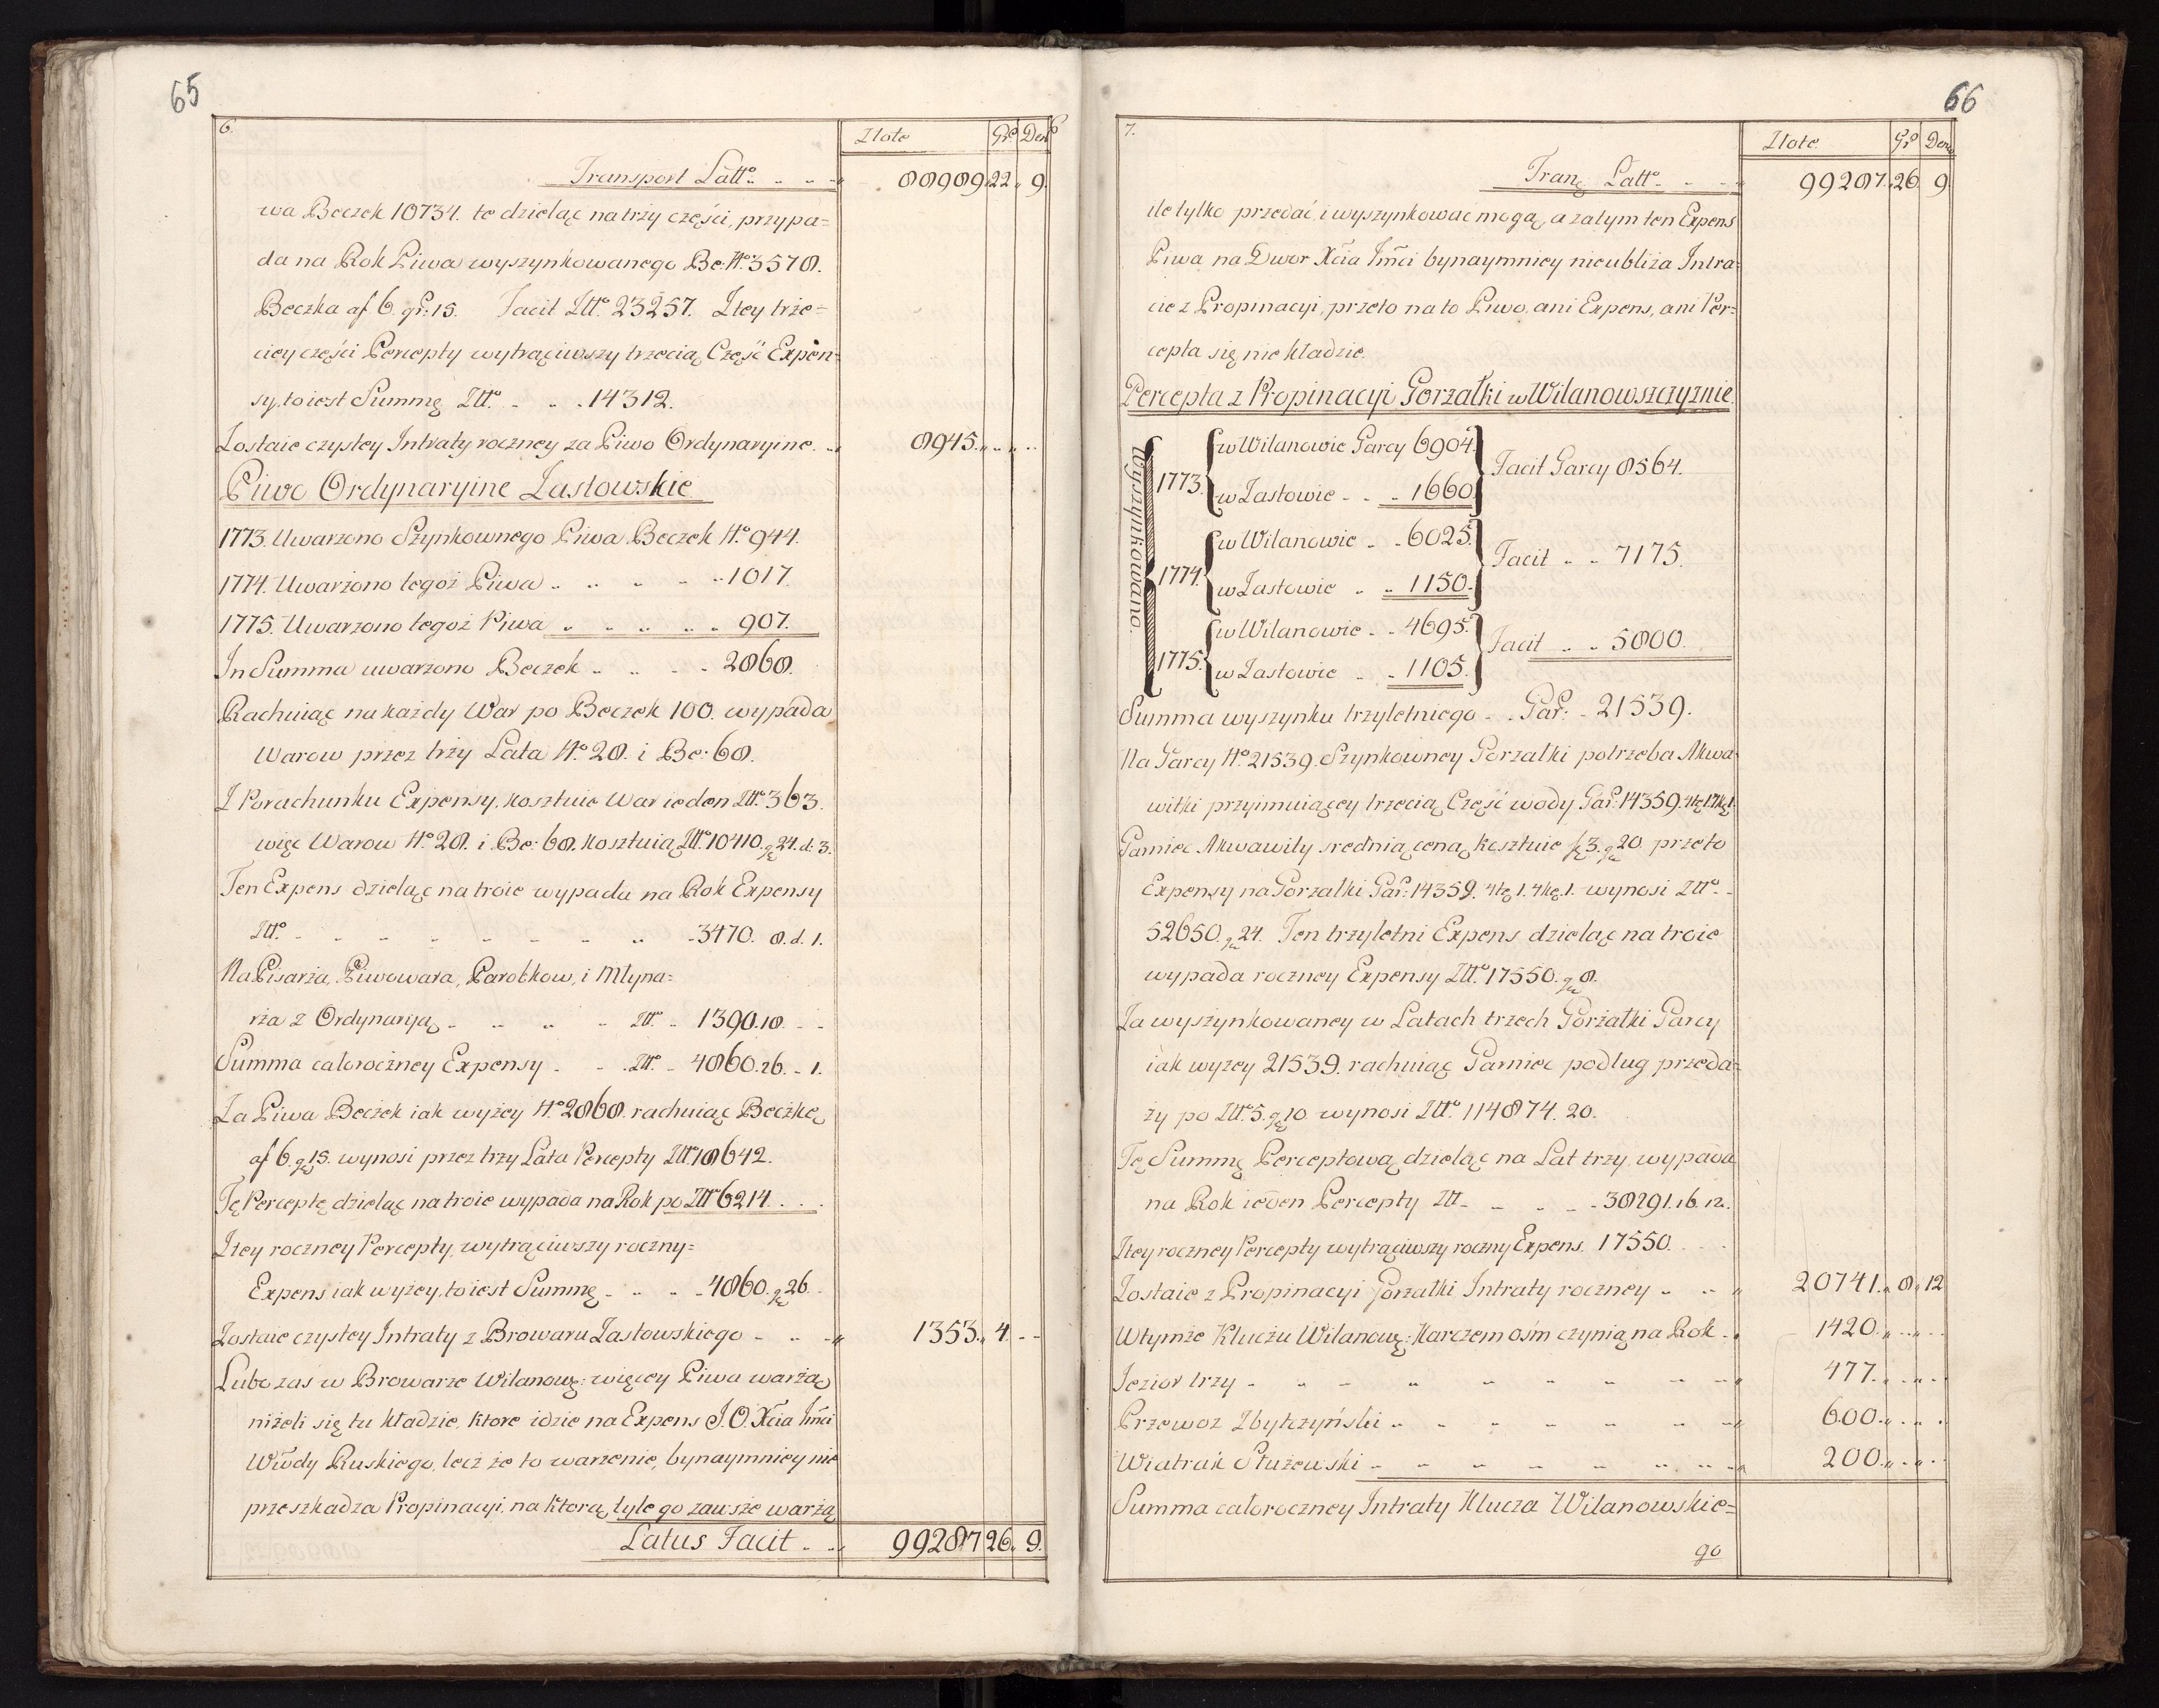 65
6.
Złote Gr. Den.
Transport Latt.. . . . 88989. 22. 9.
wa Beczek 10734. te dzieląc na trży części, przypa=
da na Rok Piwa wyszynkowanego Be: No. 3578.
Beczka af 6. gr: 15. Facit Złt. 23257. Z tey trze=
ciey części Percepty wytrąciwszy trzecią Część Expen=
sy, to iest Summę Złt. . . . 14312.
Zostaie czystey Intraty roczney za Piwo Ordynaryine. . 8945. „ . „ . .
Piwo Ordynaryine Zastowskie
1773. Uwarzono Szynkownego Piwa Beczek No. 944.
1774. Uwarżono tegoż Piwa . . . . . 1017.
1775. Uwarzono tegoż Piwa . . . . . 907.
In Summa uwarzono Beczek . . . . 2868.
Rachuiąc na każdy War po Beczek 100. wypada
Warow przez trży Lata No. 28. i Be: 68.
Z Porachunku Expensy, kosztuie War ieden Złt. 363.
więc Warow No. 28. i Be: 68. kosztuią Złt. 10410. g. 24. d. 3.
Ten Expens dzieląc na troie wypada na Rok Expensy
Złt. . . . . . . . . 3470. 8. d. 1.
Na Pisarża, Piwowara, Parobkow, i Młyna=
rża z Ordynaryą . . . . Złt. . 1390. 18. . .
Summa całorocżney Expensy . . . Złt. . 4860. 26. . 1.
Za Piwa Becżek iak wyżey No. 2868. rachuiąc Becżkę
af 6. g. 15. wynosi przez trzy Lata Percepty Złt. 18642.
Tę Perceptę dzieląc na troie wypada na Rok po Złt. 6214. . . .
Z tey roczney Percepty, wytrąciwszy roczny=
Expens iak wyżey, to iest Summę . . . . 4860. g. 26.
Zostaie czystey Intraty z Browaru Zastowskiego . . . 1353. „ 4. . .
Lubo zas w Browarze Wilanows: więcey Piwa warżą
niżeli się tu kładzie, ktore idzie na Expens J. O. Xcia Imci
Wwody Ruskiego, lecż że to warżenie, bynaymniey nie
przeszkadza Propinacyi, na ktorą tyle go zawsże warżą
Latus Facit . . 99287 26. 9.
66
7.
Złote Gr. Den.
Trans. Latt. . . . 99287. 26. 9.
ile tylko przedać, i wyszynkować mogą, a zatym ten Expens
Piwa na Dwor Xcia Imci bynaymniey nie ubliża Intra=
cie z Propinacyi, przeto na to Piwo, ani Expens, ani Per=
cepta się nie kładzie.
Percepta z Propinacyi Gorzałki w Wilanowszczyznie
Wyszynkowano.
1773. w Wilanowie Garcy 6904.
w Zastowie . . . 1660. Facit Garcy 8564.
1774. w Wilanowie . . 6025.
w Zastowie . . 1150. Facit . . 7175.
1775. w Wilanowie . . 4695.
w Zastowie . . 1105. Facit . . 5800.
Summa wyszynku trzyletniego . . Gar: . 21539.
Na Garcy No. 21539. Szynkowney Gorzałki potrzeba Akwa=
witki przyimuiącey trzecią Część wody Gar: 14359.
Garniec Akwawity srednią ceną kosztuie f. 3. g. 20. przeto
Expensy na Gorzałki Gar: 14359. wynosi Złt. .
52650. g. 24. Ten trzyletni Expens dzieląc na troie
wypada roczney Expensy Złt. 17550. g. 8.
Za wyszynkowaney w Latach trzech Gorżałki Garcy
iak wyżey 21539. rachuiąc Garniec podług przeda=
ży po Złt. 5. g. 10. wynosi Złt. 114874. 20.
Tę Summę Perceptową dzieląc na Lat trzy, wypada
na Rok ieden Percepty Złt. . . . . 38291. 16. 12.
Z tey roczney Percepty wytrąciwszy roczny Expens. 17550. . . .
Zostaie z Propinacyi Gorzałki Intraty roczney . . . 20741. „ 8. „ 12
W tymże Kluczu Wilanows: Karczem ośm czynią na Rok . . 1420. „ . „ . .
Jezior trzy . . . . . . . . . 477. „ . „ . .
Przewoz Zbytczyński . . . . . . . 600. „ . . .
Wiatrak Służewski . . . . . . . 200. „ . „ . .
Summa całoroczney Intraty Klucza Wilanowskie=
go